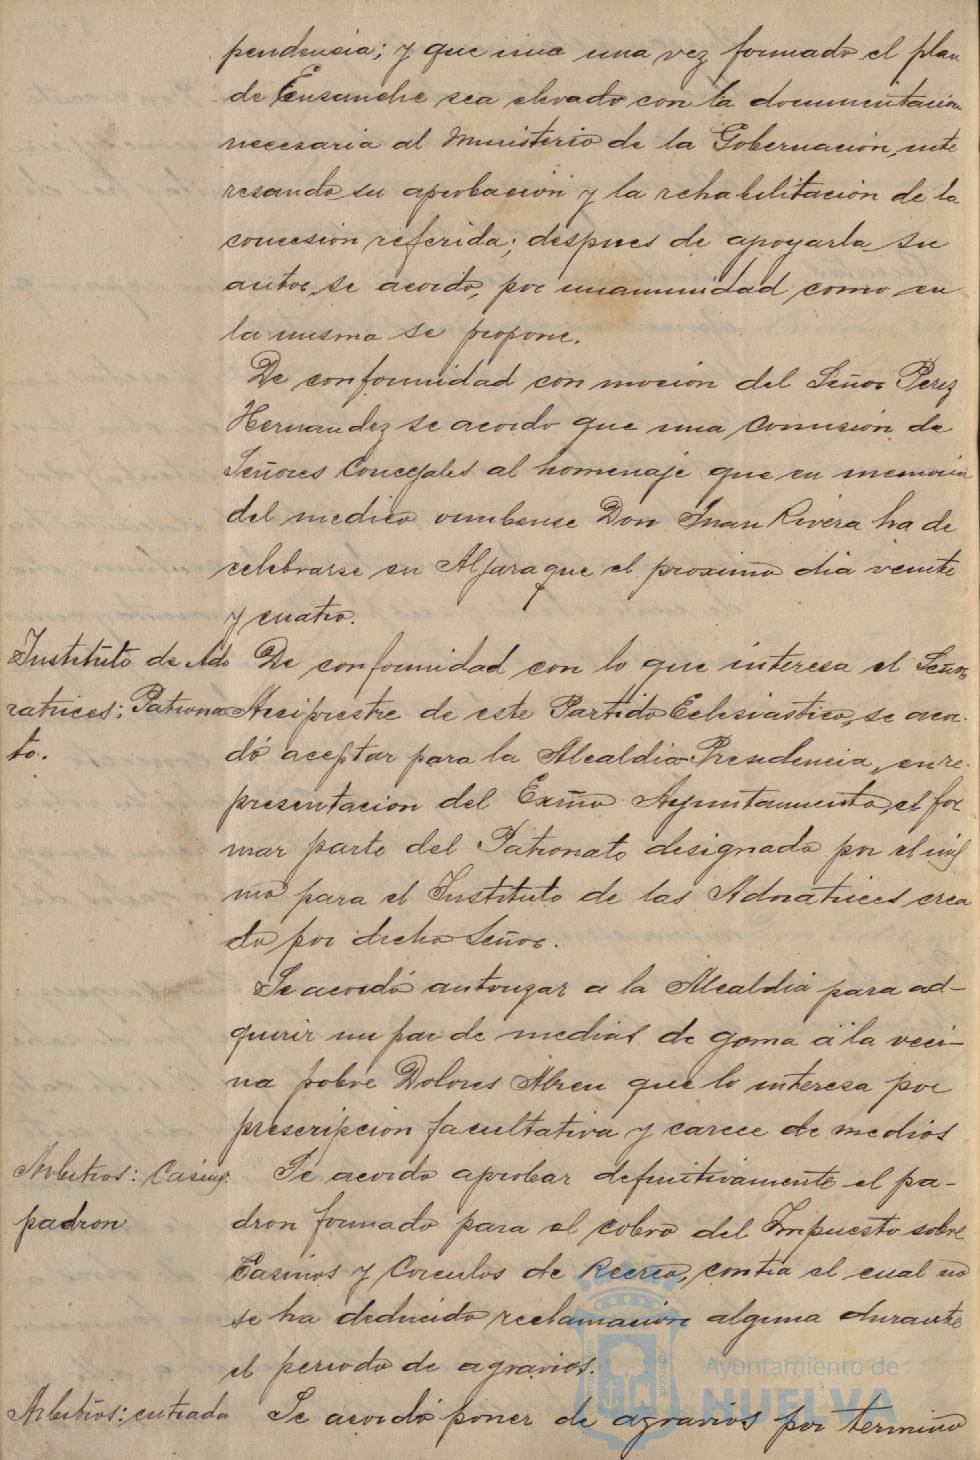 pendencia; y que una una vez formado el plan
de Ensanche sea elevado con la documentacion
necesaria al Ministerio de la Gobernación, inte
resando su aprobación y la rehabilitación de la
concesión referida; despues de apoyarla su
autor, se acordo, por unanimidad como en
la misma se propone.
De conformidad con mocion del Señor Perez
Hernandez se acordo que una Comisión de
Señores Concejales al homenaje que en memoria
del medico onubense Don Juan Rivera ha de
celebrarse en Aljaraque el proximo dia veinte
y cuatro.
Instituto de Ado
ratrices; Patrona
to.
De conformidad con lo que interesa el Señor
Arcipreste de este Partido Eclesiastico, se acor-
dó aceptar para la Alcaldia-Presidencia, en re-
presentacion del Exmo Ayuntamiento, el for
mar parte del Patronato designado por el mis
mo para el Instituto de las Adoratrices crea
do por dicho Señor.
Se acordó autorizar a la Alcaldia para ad-
quirir un par de medias de goma a la veci-
na pobre Dolores Abreu que lo interesa por
prescripcion facultativa y carece de medios
Arbitrios: Casinos
padron
Se acordo aprobar definitivamente el pa-
dron formado para el cobro del Impuesto sobre
Casinos y Circulos de Recreo, contra el cual no
se ha deducido reclamacion alguna durante
el periodo de agravios.
Arbitrios: entrada
Se acordó poner de agravios por termino
Ayuntamiento de
HUELVA